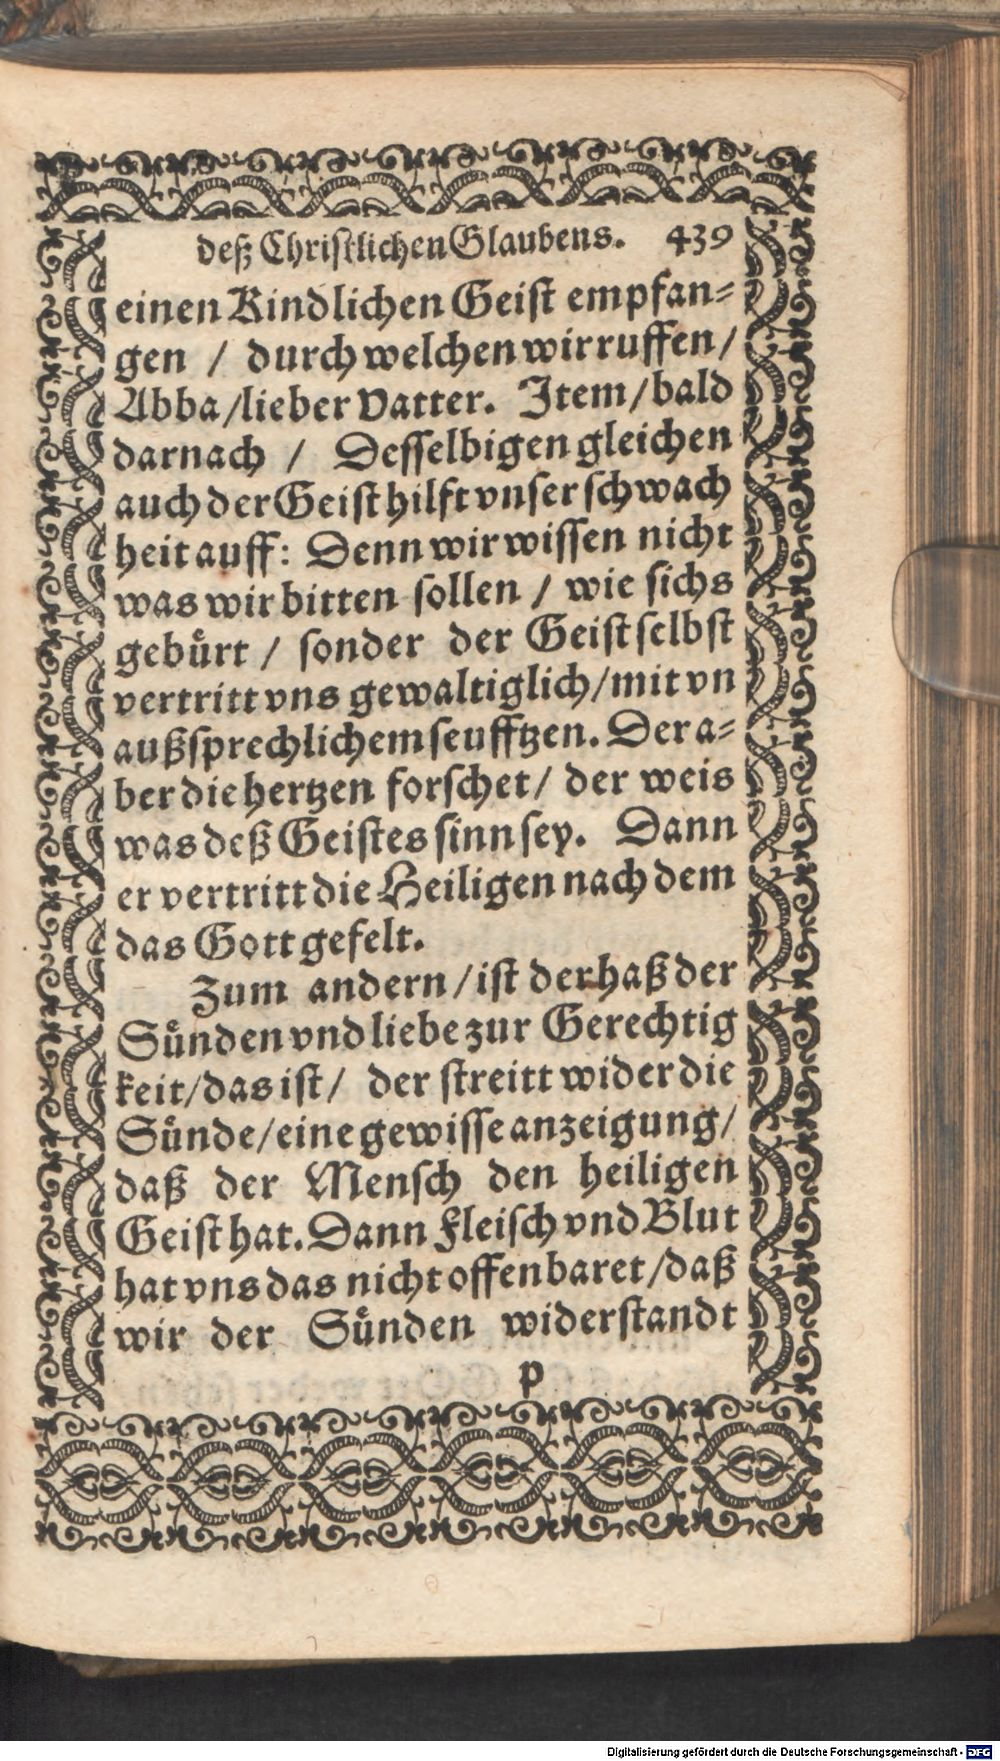 deß Christlichen Glaubens. 439
einen Kindlichen Geist empfan⸗
gen / durch welchen wir ruffen /
Abba / lieber Vatter. Item / bald
darnach / Desselbigen gleichen
auch der Geist hilfft vnser schwach
heit auff: Denn wir wissen nicht
was wir bitten sollen / wie sichs
gebuͤrt / sonder der Geist selbst
vertritt vns gewaltiglich / mit vn
außsprechlichem seufftzen. Der a⸗
ber die hertzen forschet / der weis
was deß Geistes sinn sey. Dann
er vertritt die Heiligen nach dem
das Gott gefelt.
Zum andern / ist der haß der
Suͤnden vnd liebe zur Gerechtig
keit / das ist / der streitt wider die
Suͤnde / eine gewisse anzeigung /
daß der Mensch den heiligen
Geist hat. Dann Fleisch vnd Blut
hat vns das nicht offenbaret / daß
wir der Suͤnden widerstandt
p
Digitalisierung gefördert durch die Deutsche Forschungsgemeinschaft - DFG